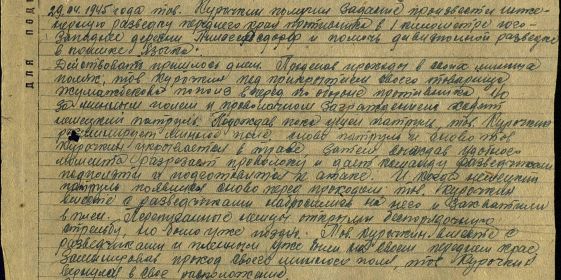 для под
29.04.1945 года тов. Курочкин получил задание произвести инже-
нерную разведку переднего края противника в 1 километре юго-
западнее деревни и помочь дивизионной разведке
в поимке языка.
Действовать пришлось днем. Проделав проходы в своих минных
полях, тов. Курочкин под прикрытием своего товарища
пополз вперед по стороне противника. Но
за минным полем и проволочным заграждением ходит
немецкий патруль. Подождав пока ушел патруль, тов. Курочкин
разминирует минное поле, снова патруль и снова тов.
Курочкин укрывается в траве. Затем выждав удобного
момента разрезает проволоку и дает команду разведчикам
подползти и подготовиться к атаке. И когда немецкий
патруль появился снова перед проходом тов. Курочкин
вместе с разведчиками набросились на него и захватили
в плен. Перепуганные немцы открыли беспорядочную
стрельбу, но было уже поздно. Тов. Курочкин вместе с
разведчиками и пленным уже были на своем переднем крае.
Заминировав проход своего минного поля, тов. Курочкин
вернулся в свое расположение.